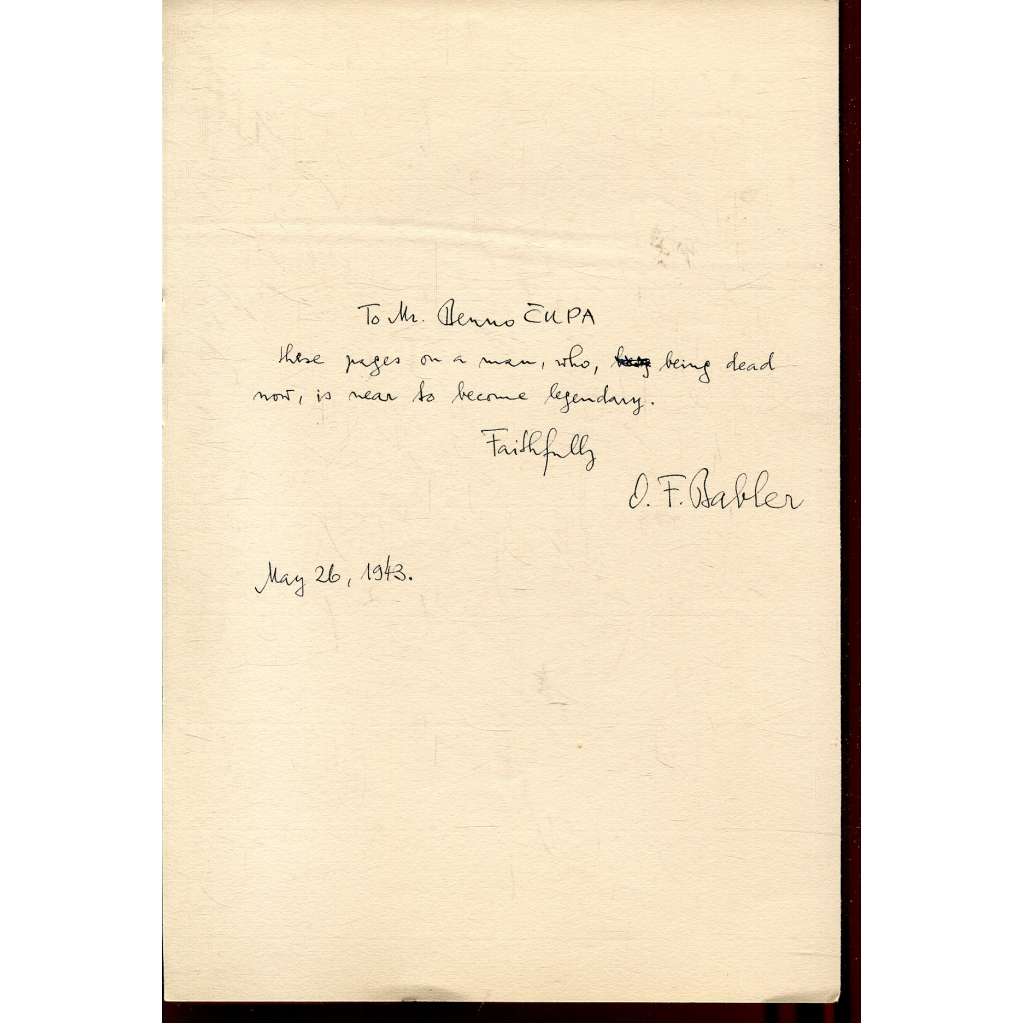 To Mr. Benno ČUPA
these pages on a man, who, being dead
now, is near to become legendary.
Faithfully
O. F. Babler
May 26, 1943.